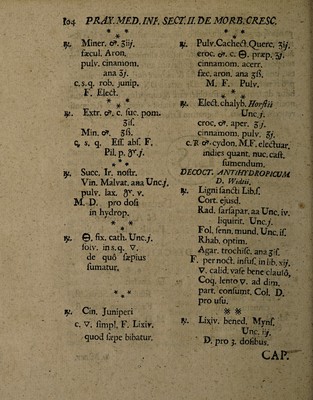 104 PRAX. MED. INF. SECT. II. DE MORB. CRESC.
* * *
℞. Miner. ♂. ʒiij.
fæcul. Aron.
pulv. cinamom.
ana ʒj.
c. s. q. rob. junip.
F. Elect.
* * *
℞. Extr. ♂. c. suc. pom.
ʒiß.
Min. ♂. ʒß.
q. s. q. Ess. abs. F.
Pil. p.
* * *
℞. Succ. Ir. nostr.
Vin. Malvat. ana Unc. j.
pulv. lax. v.
M. D. pro dosi
in hydrop.
* * *
℞. fix. cath. Unc. j.
solv. in s. q. ▽.
de quo sæpius
sumatur.
* * *
℞. Cin. Juniperi
c. ▽. simpl. F. Lixiv.
quod sæpe bibatur.
* * *
℞. Pulv. Cachect. Querc. ʒij.
croc. ♂. c. præp. ʒj.
cinnamom. acerr.
fæc. aron. ana ʒß.
M. F. Pulv.
* * *
℞. Elect. chalyb. Horstii
Unc. j.
croc. ♂. aper. ʒj.
cinnamom. pulv. ʒj.
cydon. M. F. electuar.
indies quant. nuc. cast.
sumendum.
DECOCT. ANTIHYDROPICUM
℞. Ligni sancti Lib. ß.
Cort. ejusd.
Rad. sarsapar. aa Unc. iv.
liquirit. Unc. j.
Fol. senn. mund. Unc. iß.
Rhab. optim.
Agar. trochisc. ana ʒiß.
F. per noct. infus. in lib. xij.
▽. calid. vase bene clauso.
Coq. lento ▽. ad dim.
part. consumt. Col. D.
pro usu.
* *
℞. Lixiv. bened. Myns.
Unc. ij.
D. pro 3. dosibus.
CAP.